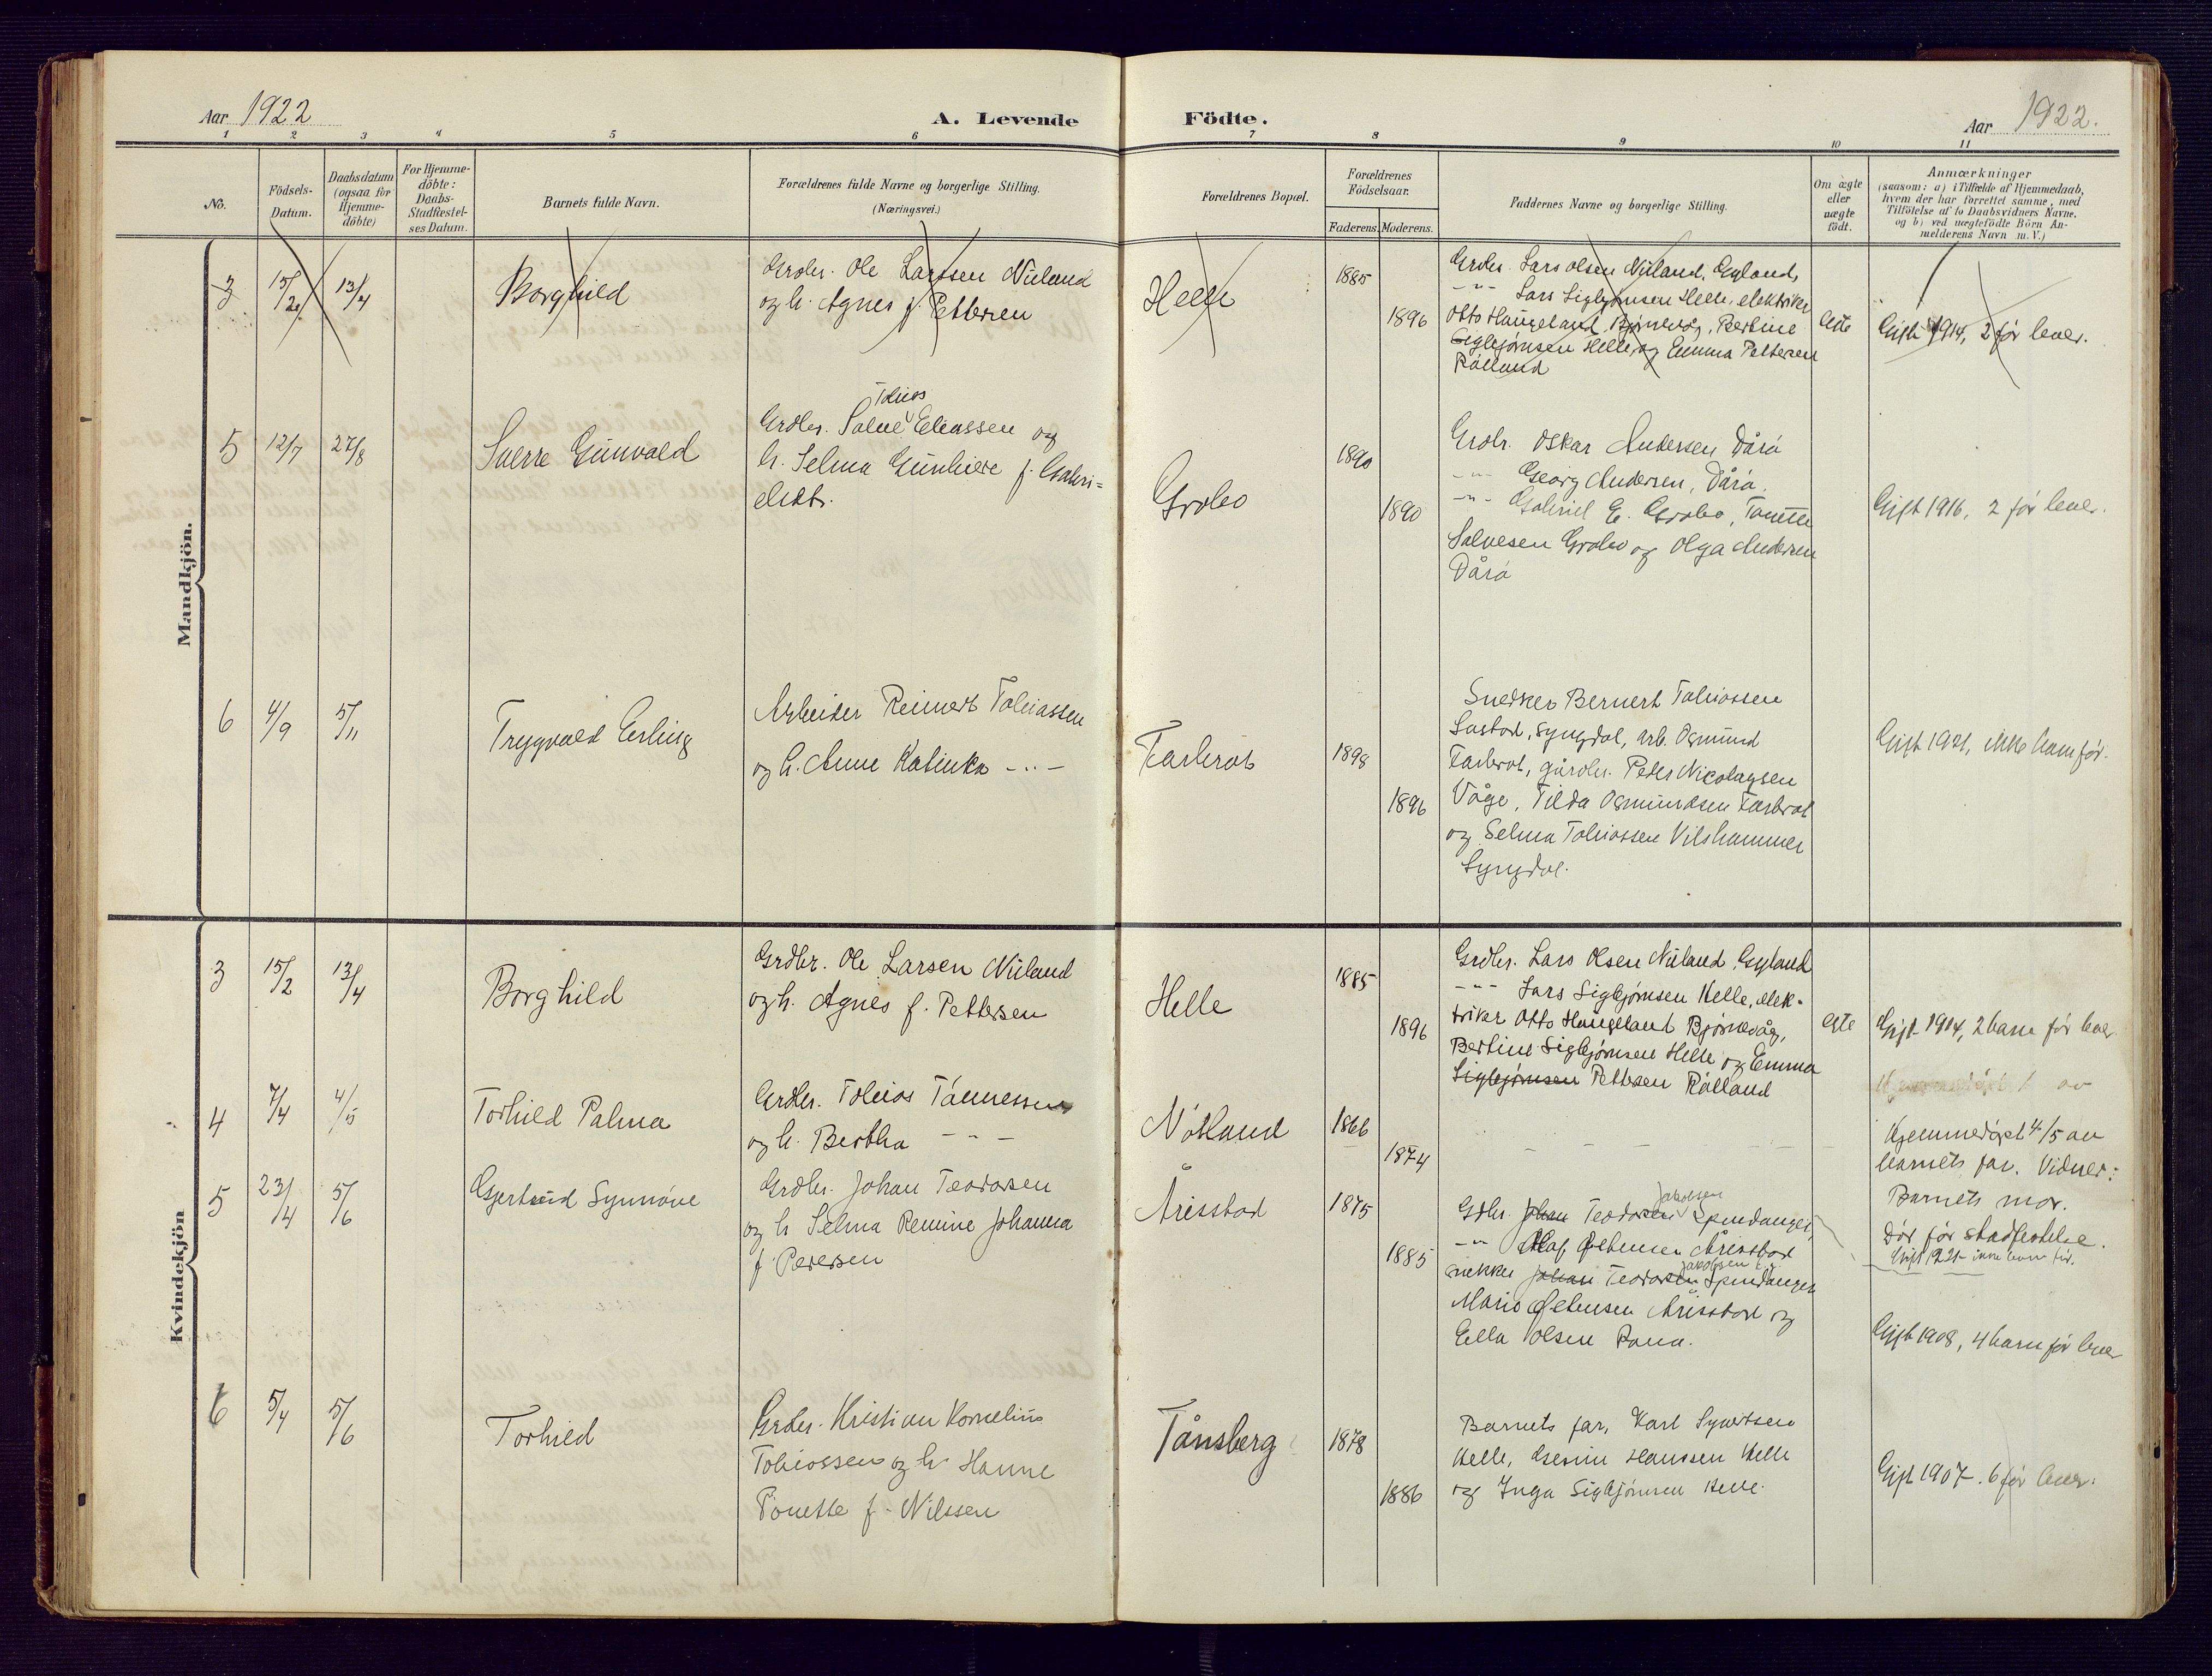 Aar 1922
A. Levende
Födte.
Aar 1922.
1 2 3 4 5 6 7 8 9 10 11
No.
Födsels-
Datum.
Daabsdatum
(ogsaa for
Hjemme-
döbte)
For Hjemme-
döbte:
Daabs-
Stadfæstel-
ses Datum.
Barnets fulde Navn.
Forældrenes fulde Navne og borgerlige Stilling.
(Næringsvei.)
Forældrenes Bopæl.
Forældrenes
Födselsaar.
Faderens. Moderens.
Faddernes Navne og borgerlige Stilling.
Om ægte
eller
uægte
födt.
Anmærkninger
(saasom: a) i Tilfælde af Hjemmedaab,
hvem der har forrettet samme, med
Tilföielse af to Daabsvidners Navne.
og b) ved uægtefödte Börn An-
melderens Navn m. V.)
Mandkjön.
3
15/2
13/4
Borghild
Grdbr. Ole Larssen Nuland
og h. Agnes f. Pettersen
Helle
1885
1896
Grdbr. Lars Olsen Nuland, Gyland,
-"- Lars Sigbjørnsen Helle, elektriker
Otto Haugeland Bjørnevåg, Bertine
Sigbjørnsen Helle og Emma Pettersen
Rålland
egte
Gift 1914, 2 før lever.
5
12/7
27/8
Sverre Gunvald
Tobias
Grdbr. Salve Eliassen og
h. Selma Gunhilde f. Gabri-
elsdt.
Grobo
1890
1890
Grdbr. Oskar Andersen Dårå
-"- Georg Andersen, Dårå.
-"- Gabriel E. Grobo, Tomine
Salvesen Grobo og Olga Andersen
Dårå
Gift 1916, 2 før lever.
6
4/9
5/11
Trygvald Erling
Arbeider Reinert Tobiassen
og h. Anne Katinka -"-
Farbrot
1898
1896
Snedker Bernert Tobiassen
Lyngdal, arb. Osmund
Farbrot, gårdbr. Peder Nicolaysen
Våge, Tilda Osmundsen Farbrot
og Selma Tobiassen Vilshammer
Lyngdal.
Gift 1921, ikke barn før.
Kvindekjön
3
15/2
13/4
Borghild
Grdbr. Ole Larsen Nuland
og h. Agnes f. Pettersen
Helle
1885
1896
Grdbr. Lars Olsen Nuland, Gyland
-"- Lars Sigbjørnsen Helle, elek-
triker Otto Haugeland Bjørnevåg,
Bertine Sigbjørnsen Helle og Emma
Sigbjørnsen Pettersen Rålland
egte
Gift 1914, 2 barn før lever
4
7/4
4/5
Torhild Palma
Grdbr. Tobias Tønnessen
og h. Bertha -"-
Nøtland
1866
1874
Hjemmedøpt 4/5 av
barnets far. Vidner:
Barnets mor.
Død før stadfestelse.
5
23/4
5/6
Gjertrud Synnøve
Grdbr. Johan Teodorsen
og h. Selma Remine Johanna
f. Pedersen
Årisstad
1875
1885
Jakobsen
Gdbr. Johan Teodorsen Spindangen,
-"- Olaf Årisstad
Jakobsen
snekker Johan Teodorsen Spindangen
Årisstad og
Ella Olsen Rana.
Gift 1908, 4 barn før lever
6
5/4
5/6
Torhild
Grdbr. Kristian Kornelius
Tobiassen og h. Hanne
Tonette f. Nilssen
Tånsberg
1878
1886
Barnets far, Karl Syvertsen
Helle, Gesine Hanssen Helle
og Inga Sigbjørnsen Helle.
Gift 1907. 6 før lever.